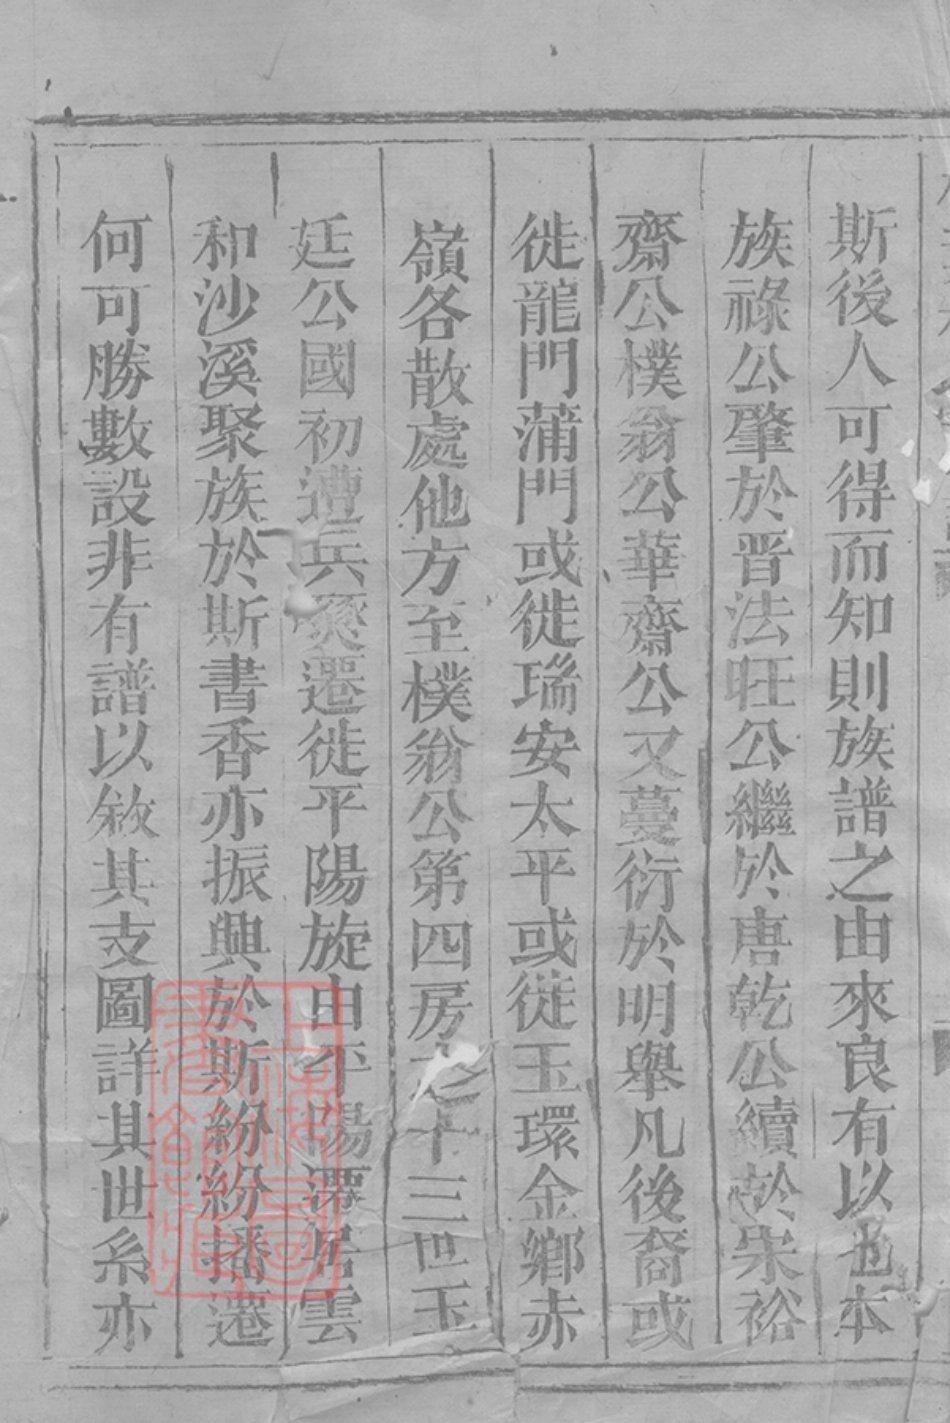 斯後人可得而知則族譜之由來良有以也本
族祿公肇於晋法旺公繼於唐乾公續於宋裕
齋公樸翁公華齋公又蔓衍於明舉凡後裔或
徙龍門蒲門或徙瑞安太平或從玉環金鄉赤
嶺各散處他方至樸翁公第四房之十三世玉
廷公國初遭兵燹遷徙平陽旋由平陽遷居雲
和沙溪聚族於斯書香亦振興於斯紛紛播遷
何可勝數設非有譜以敘其支圖詳其世系亦